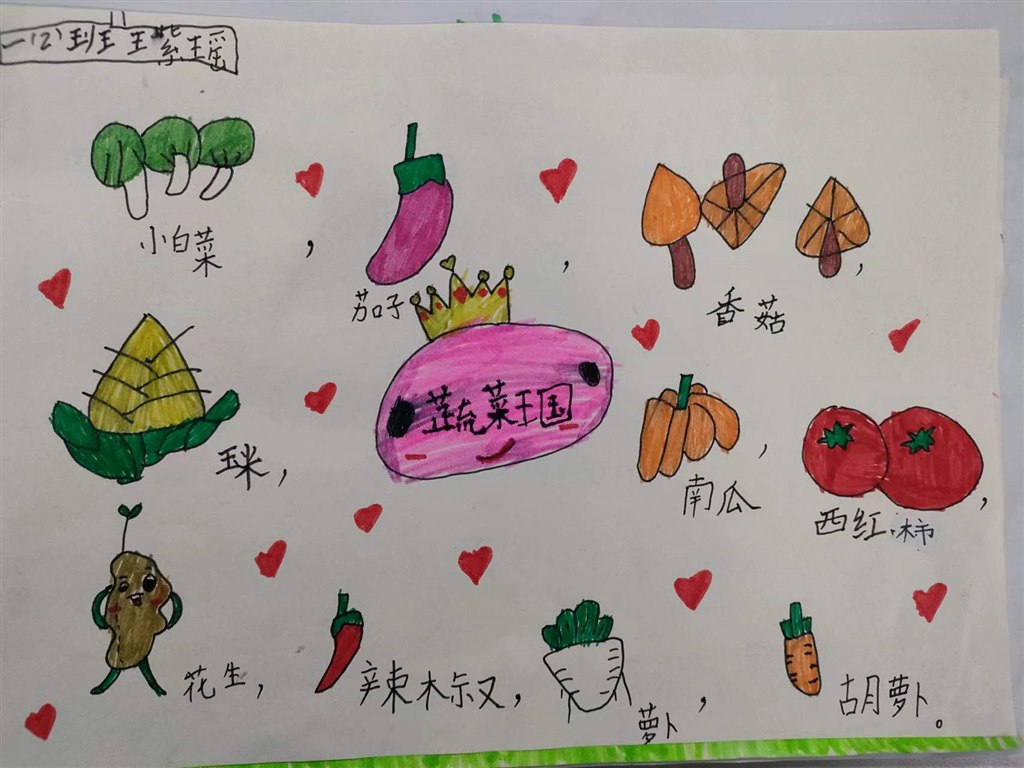 一(2)班王紫瑶
小白菜,
茄子,
香菇,
蔬菜王国
玉米,
南瓜,
西红柿,
花生,
辣椒,
萝卜,
胡萝卜。